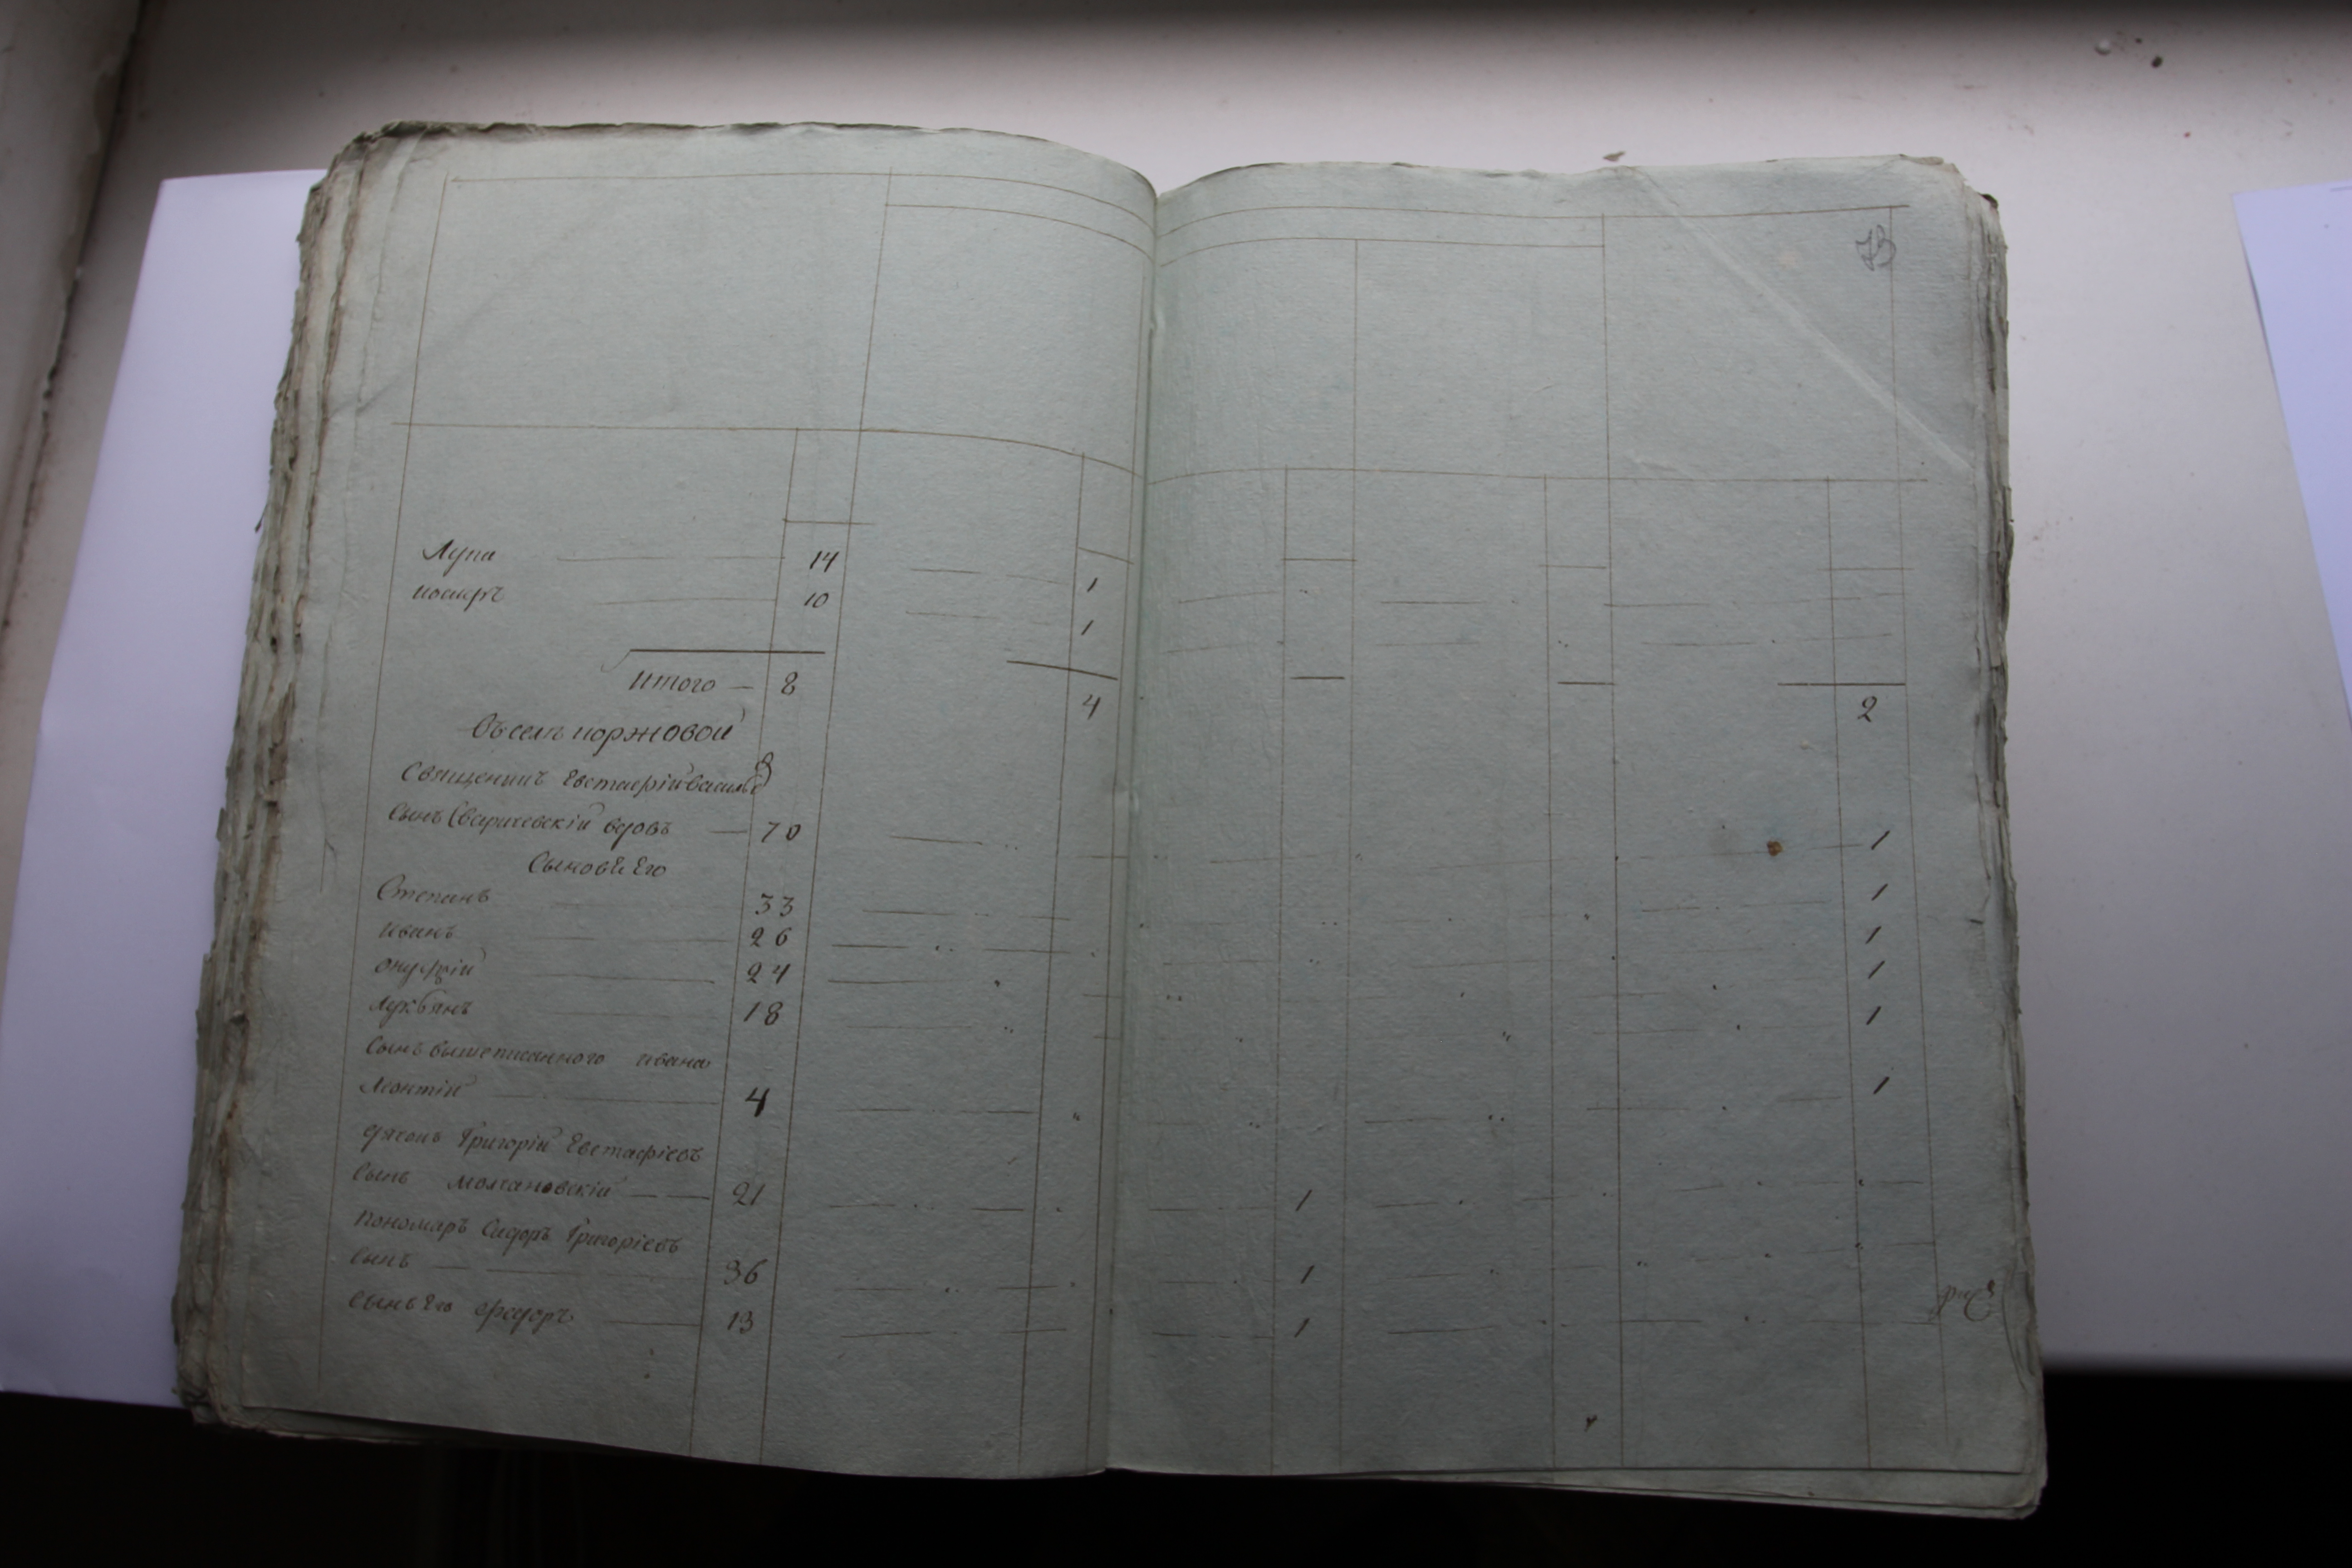 73
Лупа 14 1
иосифъ 10 1
Итого — 8 4 2
Въ селѣ коржовой
Священникъ Евстафій Василіевъ
сынъ Сваричевскій вдовъ — 70 1
Сыновѣ Его
Степанъ 33 1
иванъ 26 1
онуфрій 24 1
лукбянъ 18 1
сынъ вышеписанного ивана
Леонтій 4 1
дячокъ Григорій Евстафіевъ
сынъ молчановскій — — 21 1
Пономаръ Сидоръ Григоріевъ
сынъ — 36 1
сынъ Его федоръ 13 1